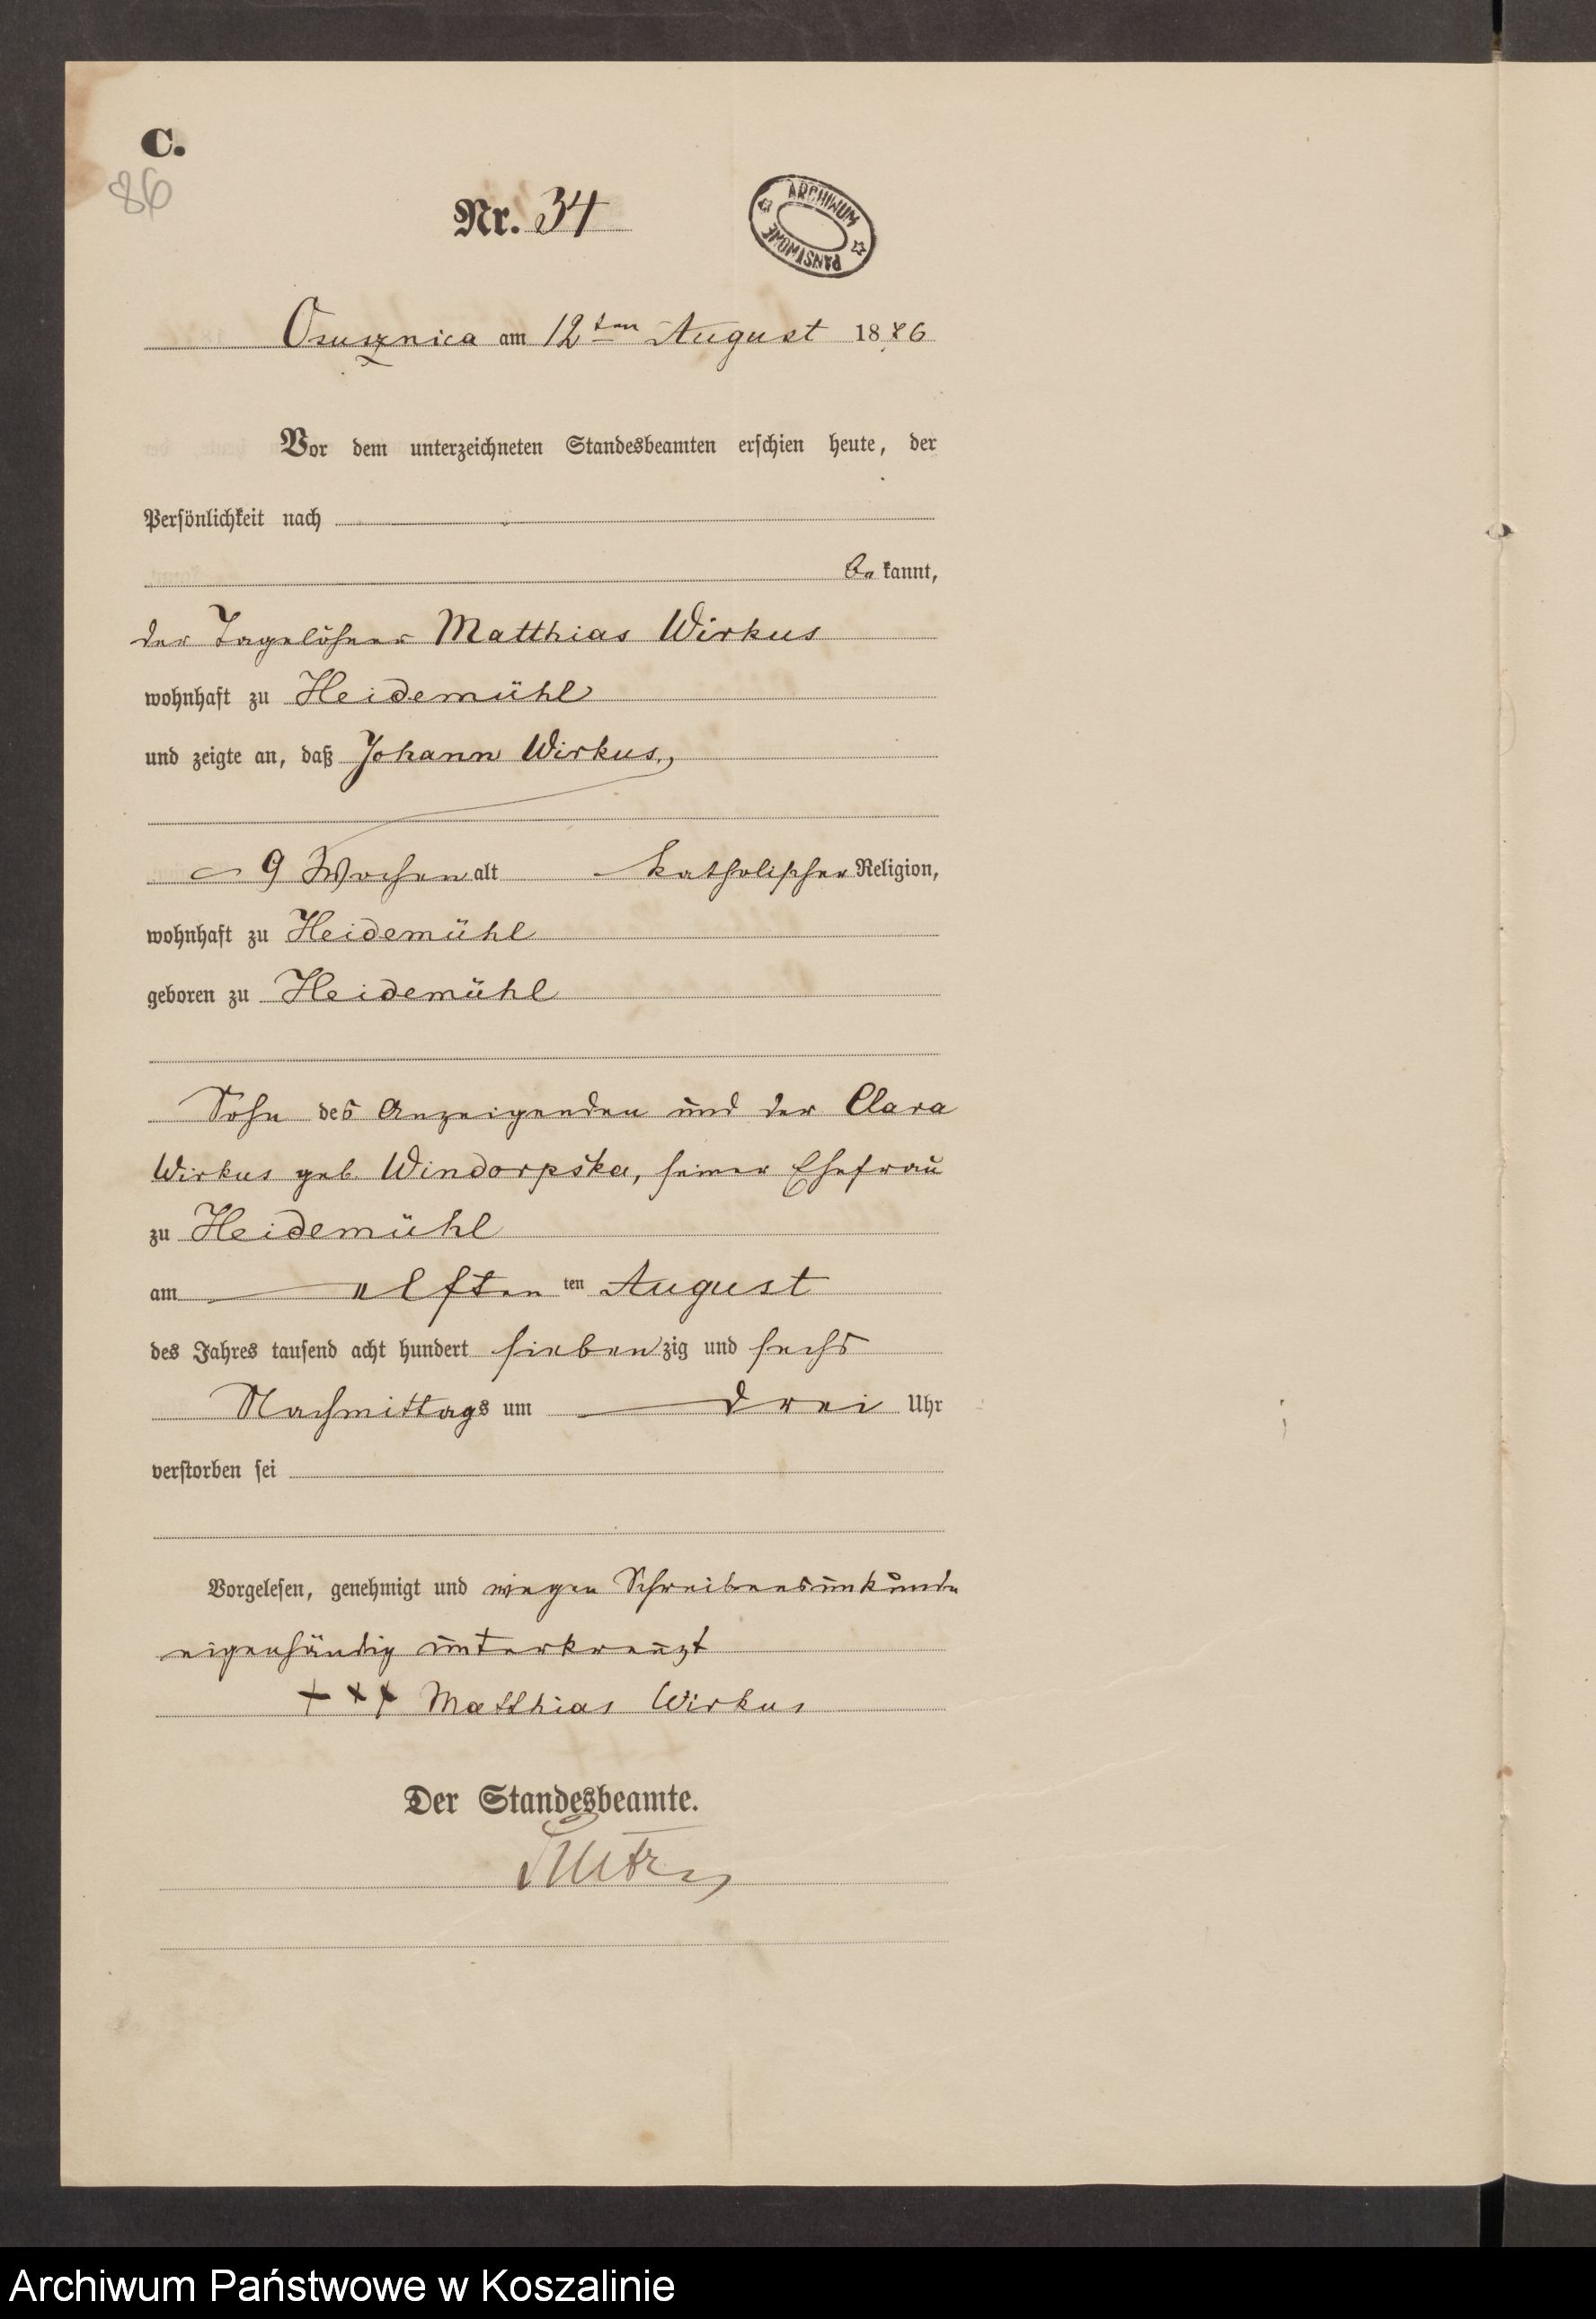 C.
86
Nr. 34
ARCHIWUM PAŃSTWOWE
Osusznica am 12ten August 1876
Vor dem unterzeichneten Standesbeamten erschien heute, der
Persönlichkeit nach
be kannt,
der Tagelöhner Matthias Wirkus
wohnhaft zu Heidemühl
und zeigte an, daß Johann Wirkus,
9 Wochen alt katholischer Religion,
wohnhaft zu Heidemühl
geboren zu Heidemühl
Sohn des Anzeigenden und der Clara
Wirkus geb. Windorpska, seiner Ehefrau
zu Heidemühl
am elften ten August
des Jahres tausend acht hundert siebenzig und sechs
Nachmittags um drei Uhr
verstorben sei
Vorgelesen, genehmigt und wegen Schreibensunkunde
eigenhändig unterkreuzt
+ + + Matthias Wirkus
Der Standesbeamte.
Archiwum Państwowe w Koszalinie